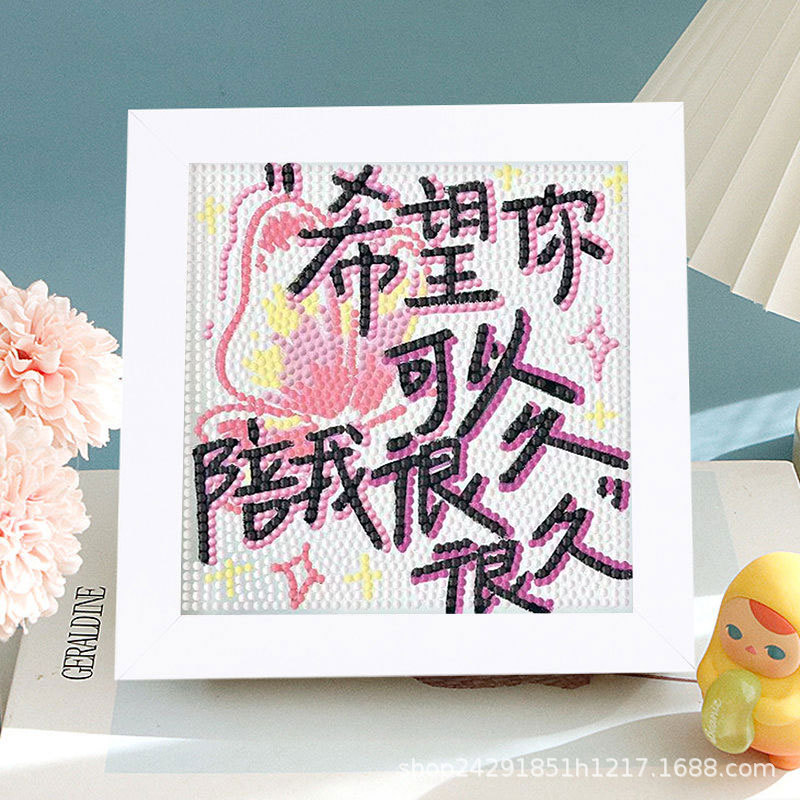 "希望你
可以
陪我很久
很很久"
GERALDINE
shop24291851h1217.1688.com